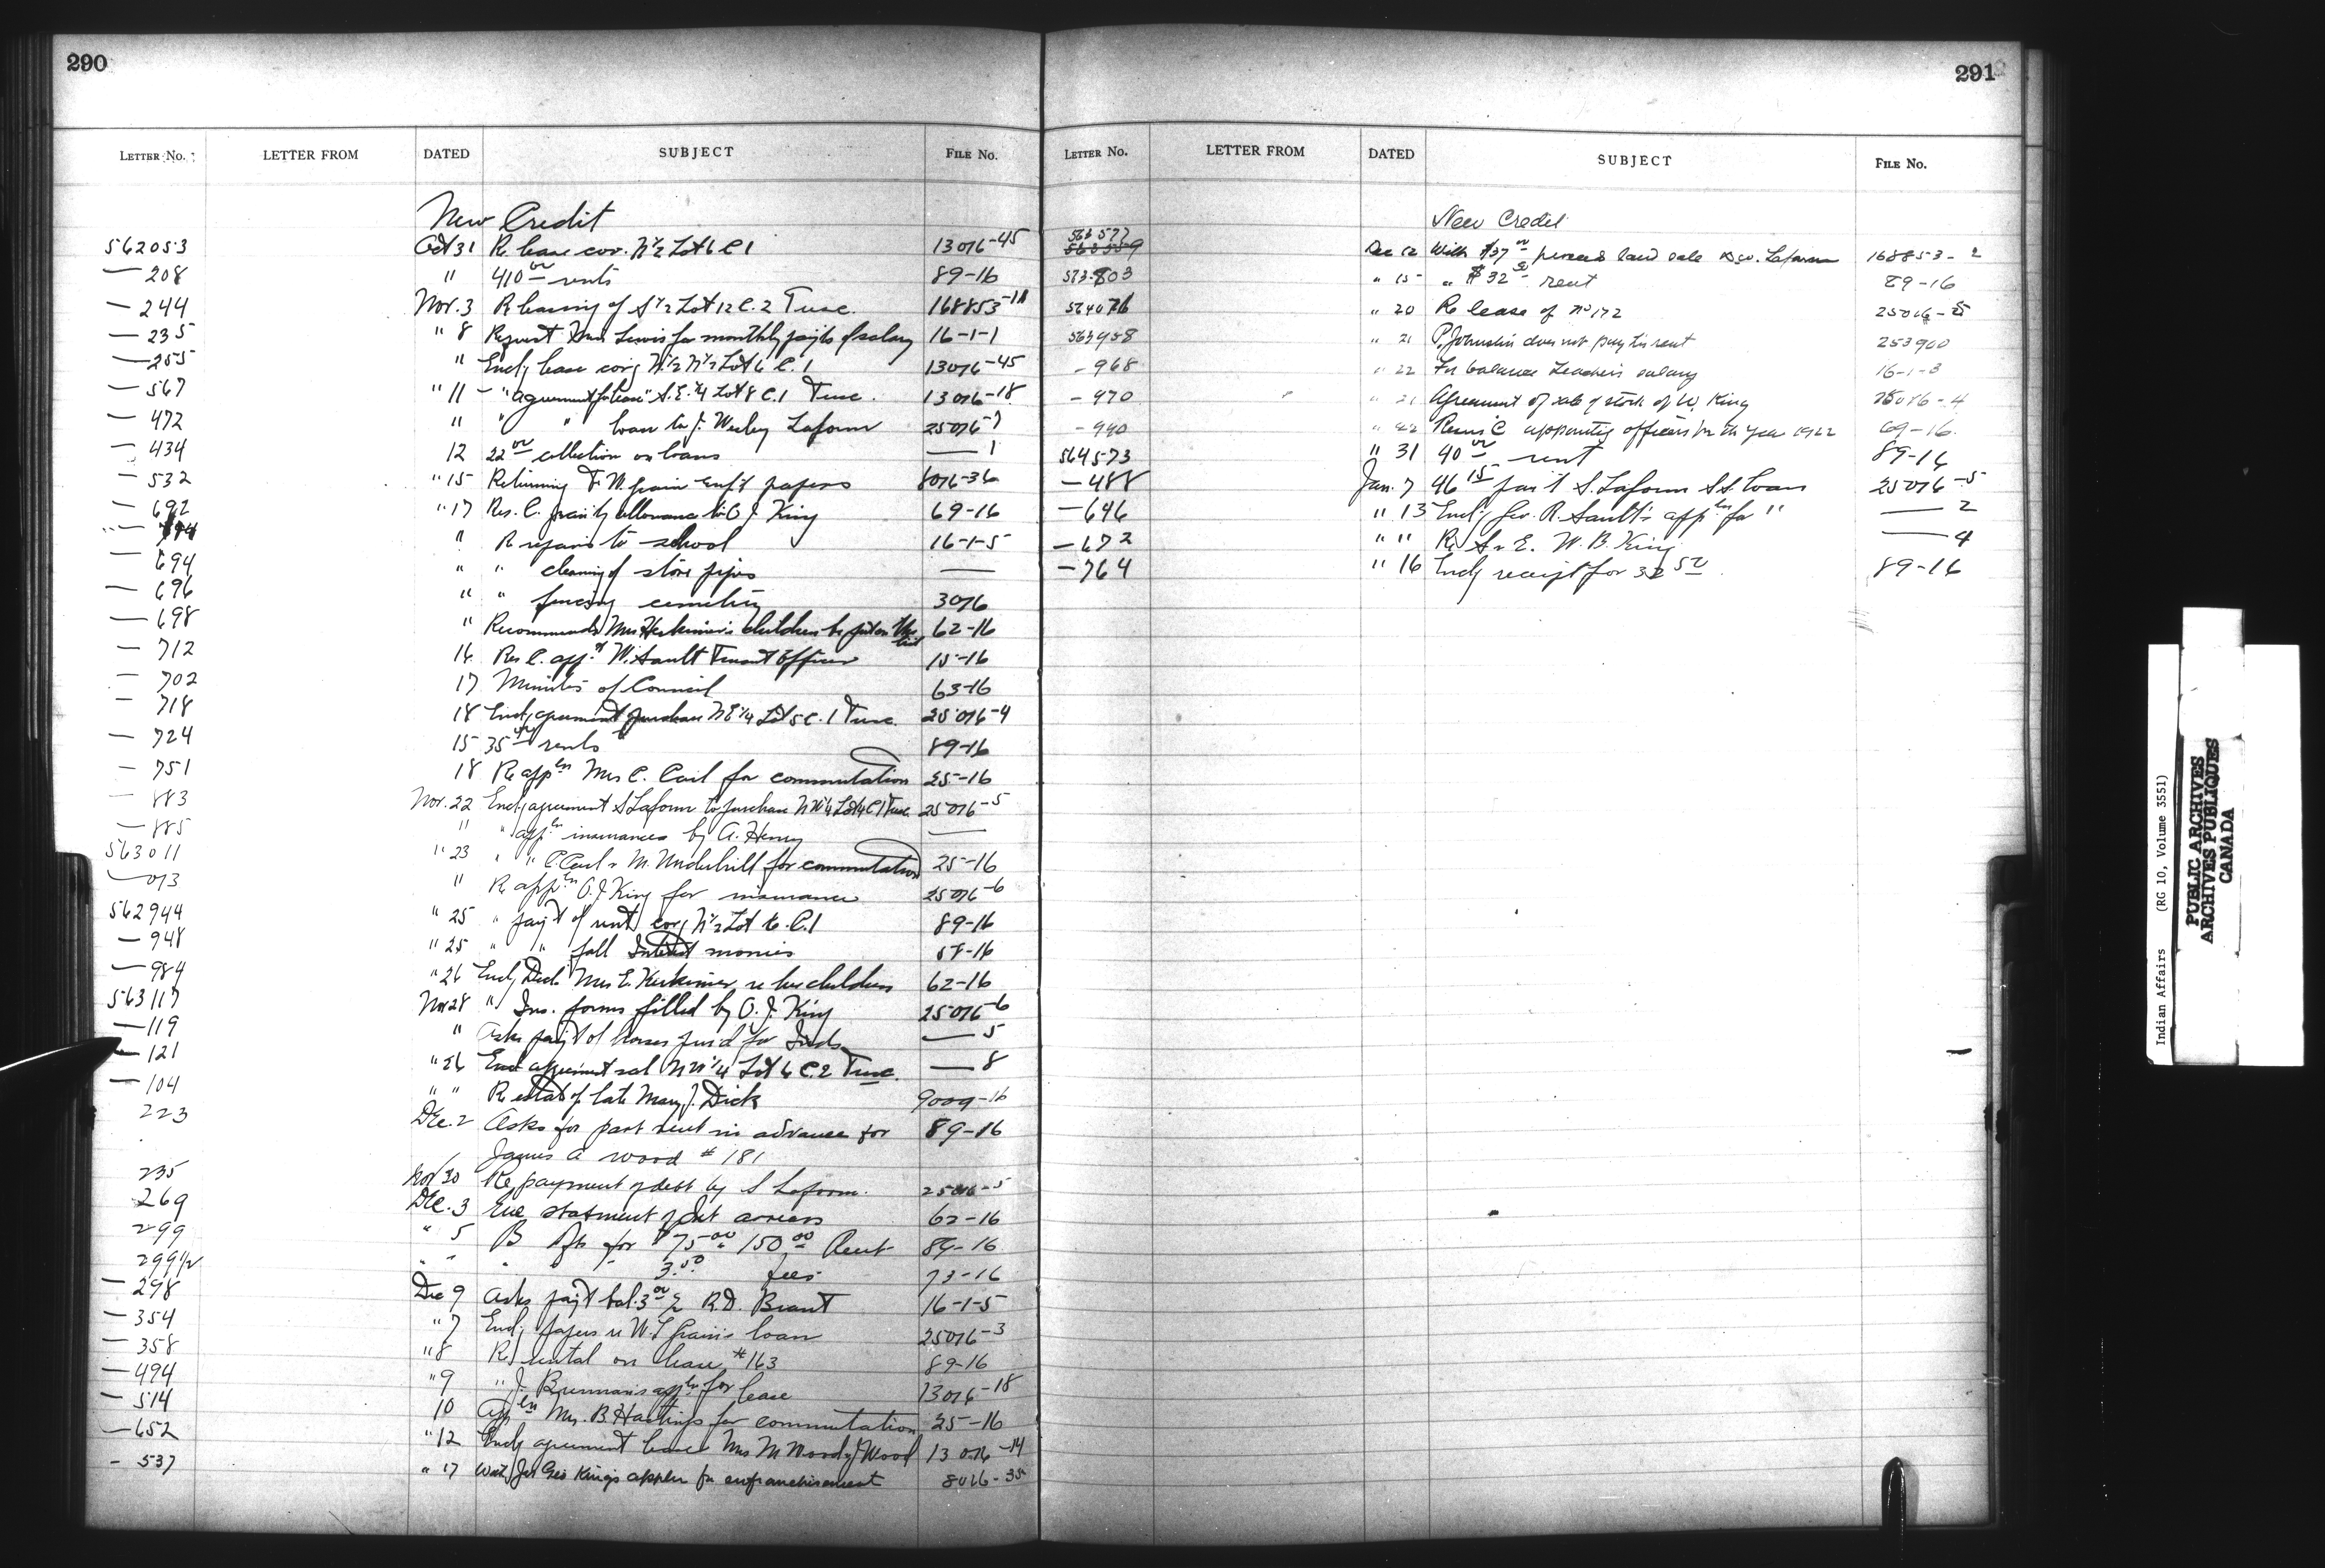 290
LETTER NO. LETTER FROM DATED SUBJECT FILE NO.
New Credit
562053 Oct 31 Re lease cov. N½ Lot 6 C 1 13076-45
— 208 " 410.00 rents 89-16
— 244 Nov. 3 Re leasing of S½ Lot 12 C. 2 Tusc. 168853-11
— 235 " 8 Request Lewis for monthly pay'ts of salary 16-1-1
— 255 " Encl'g lease cov'g N½ N½ Lot 6 C. 1 13076-45
— 567 " 11 - "agreement for lease" S.E.¼ Lot 8 C.1 Tusc. 13076-18
— 472 " " " loan to J. Wesley Laform 25076-7
— 434 12 22.00 collection on loans — 1
— 532 " 15 Returning F. W. enf't papers 8016-36
— 692 " 17 Res. C. allowance to O J. King 69-16
" Re repairs to school 16-1-5
— 694 " " cleaning of stove pipes —
— 696 " " fencing cemetery 3076
— 698 " Recommends Mrs Herkimer's children be put on the list 62-16
— 712 16 Res C. app't W. Sault Truant Officer 15-16
— 702 17 Minutes of Council 63-16
— 718 18 Encl'g agreement purchase N E¼ Lot 5 C. 1 Tusc. 25076-4
— 724 15 35.00 rents 89-16
— 751 18 Re appln Mrs C. Cail for commutation 25-16
— 883 Nov. 22 Encl'g agreement S Laform to purchase N W¼ Lot 4 C 1 Tusc. 25076-5
— 885 " " appln insurances by A. Henry —
563011 " 23 " " & M. Underhill for commutation 25-16
— 013 " Re appln O. J. King for insurance 25076-6
562944 " 25 " pay't of rent cov'g N½ Lot 6. C.1 89-16
— 948 " 25 " " fall Interest monies 58-16
— 984 " 26 Encl'g Decl. Mrs E. Herkimer, re her children 62-16
563117 Nov 28 " Ins. forms filled by O. J. King 25076-6
— 119 " Asks pay't of horses pur'd for Inds — 5
— 121 " 26 Encl agreement sal N W¼ Lot 6 C. 2 Tusc. — 8
— 104 " " Re estat of late Mary J. Dick 9009-16
223 Dec. 2 Asks for part rent in advance for 89-16
James A Wood # 181
235 Nov 30 Re payment of debt by S Laform. 25076-5
269 Dec. 3 Enc statment of Int arrears 62-16
299 " 5 B for $75.00 150.00 Rent 89-16
299½ " " " 3.50 fees 73-16
— 298 Dec 9 Asks pay't bal. 3.00 R.D. Brant 16-1-5
— 354 " 7 Encl'g papers re W. loan 25076-3
— 358 " 8 Re rental on lease #163 89-16
— 494 " 9 " J. Brennan's appln for lease 13076-18
— 514 10 Appln Mrs. B. Hastings for commutation 25-16
— 652 " 12 Encl'g agreement lease Mrs M Wood 13076-14
- 537 " 17 Geo King's appln for enfranchisement 8016-35
291
LETTER NO. LETTER FROM DATED SUBJECT FILE NO.
New Credit
563577
563559 Dec 12 With $37.00 proceeds land sale Laform 168853-2
573803 " 15 " $32.50 rent 89-16
564076 " 20 Re lease of No 172 25016-5
563958 " 21 P. Johnston does not pay his rent 253900
- 968 " 22 For balance teacher's salary 16-1-3
- 970 " 21 Agreement of sale of stock of W. King 25076-4
- 990 " 22 Resns C appointing officers for the year 1922 69-16
564573 " 31 40.00 rent 89-16
— 488 Jan. 7 46.15 pay't S. Laform S.S. loan 25076-5
— 646 " 13 Encl'g Geo. R. Sault's appln for " — 2
— 672 " " Re W. B. King — 4
— 764 " 16 Encl'g receipt for 32.50 89-16
Indian Affairs (RG 10, Volume 3551)
PUBLIC ARCHIVES
ARCHIVES PUBLIQUES
CANADA